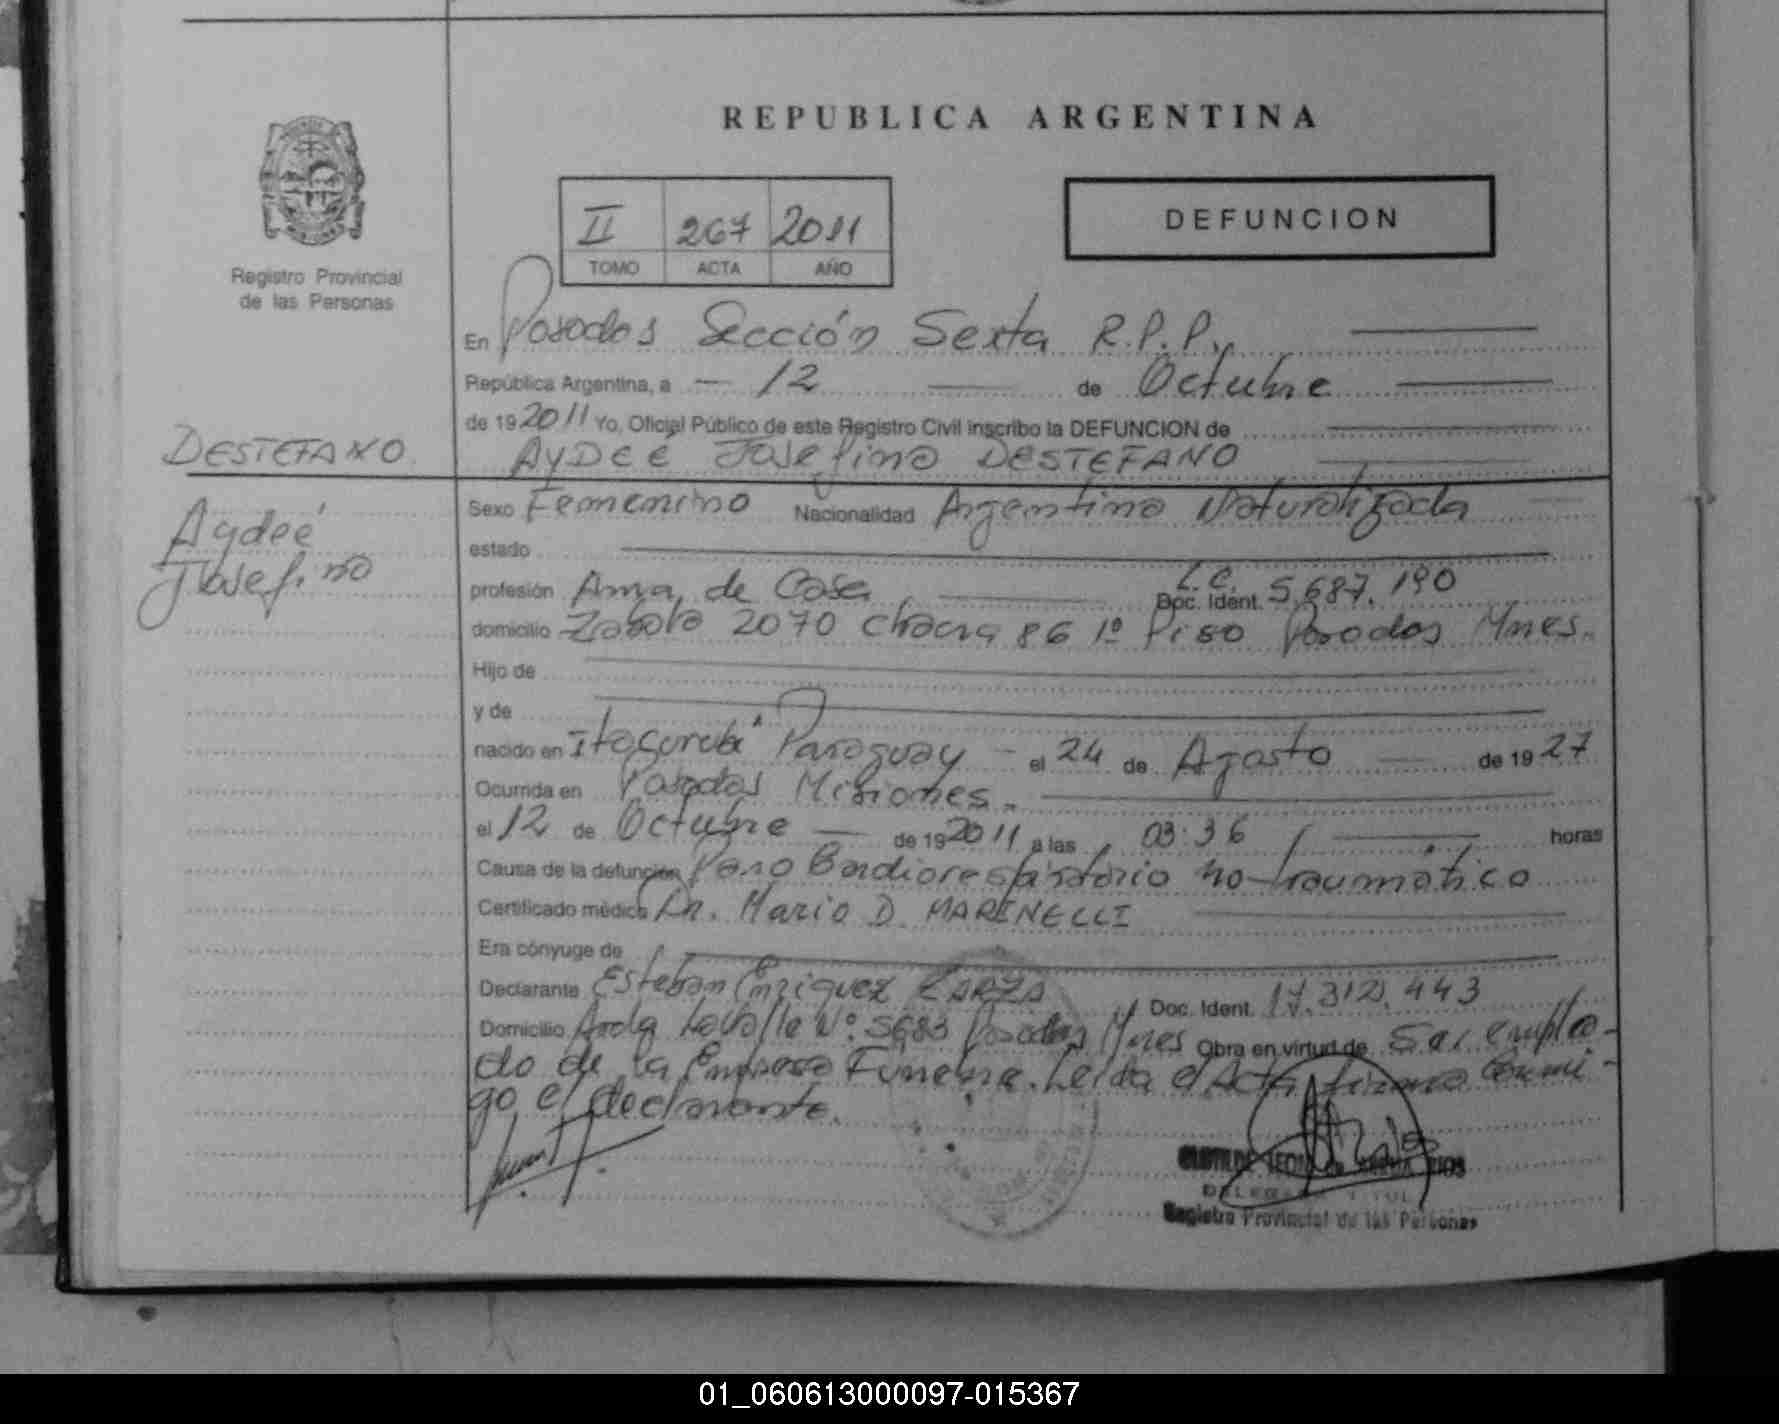 REPUBLICA ARGENTINA
II 267 2011
TOMO ACTA AÑO
DEFUNCION
Registro Provincial
de las Personas
En Posadas Sección Sexta R.P.P.
República Argentina, a 12 de Octubre
de 19 2011 Yo, Oficial Público de este Registro Civil inscribo la DEFUNCION de
DESTEFANO
AYDEÉ Josefina DESTEFANO
Aydeé
Josefina
Sexo Femenino Nacionalidad Argentina Naturalizada
estado
profesión Ama de Casa Doc. Ident. L.C. 5.687.190
domicilio Zabala 2070 Chacra 86 1º Piso Posadas Mnes.
Hijo de
y de
nacido en Itacurubí Paraguay el 24 de Agosto de 19 27
Ocurrida en Posadas Misiones
el 12 de Octubre de 19 2011 a las 03:36 horas
Causa de la defunción Paro Cardiorespiratorio no traumático
Certificado médico Dr. Mario D. MARINELLI
Era cónyuge de
Declarante Esteban Enriquez ZARZA Doc. Ident. 17.312.443
Domicilio Avda Lavalle Nº 5683 Posadas Mnes Obra en virtud de Ser emplea-
do de la Empresa Fúnebre. Leída el Acta firma Conmi-
go el declarante.
Registro Provincial de las Personas
01_060613000097-015367